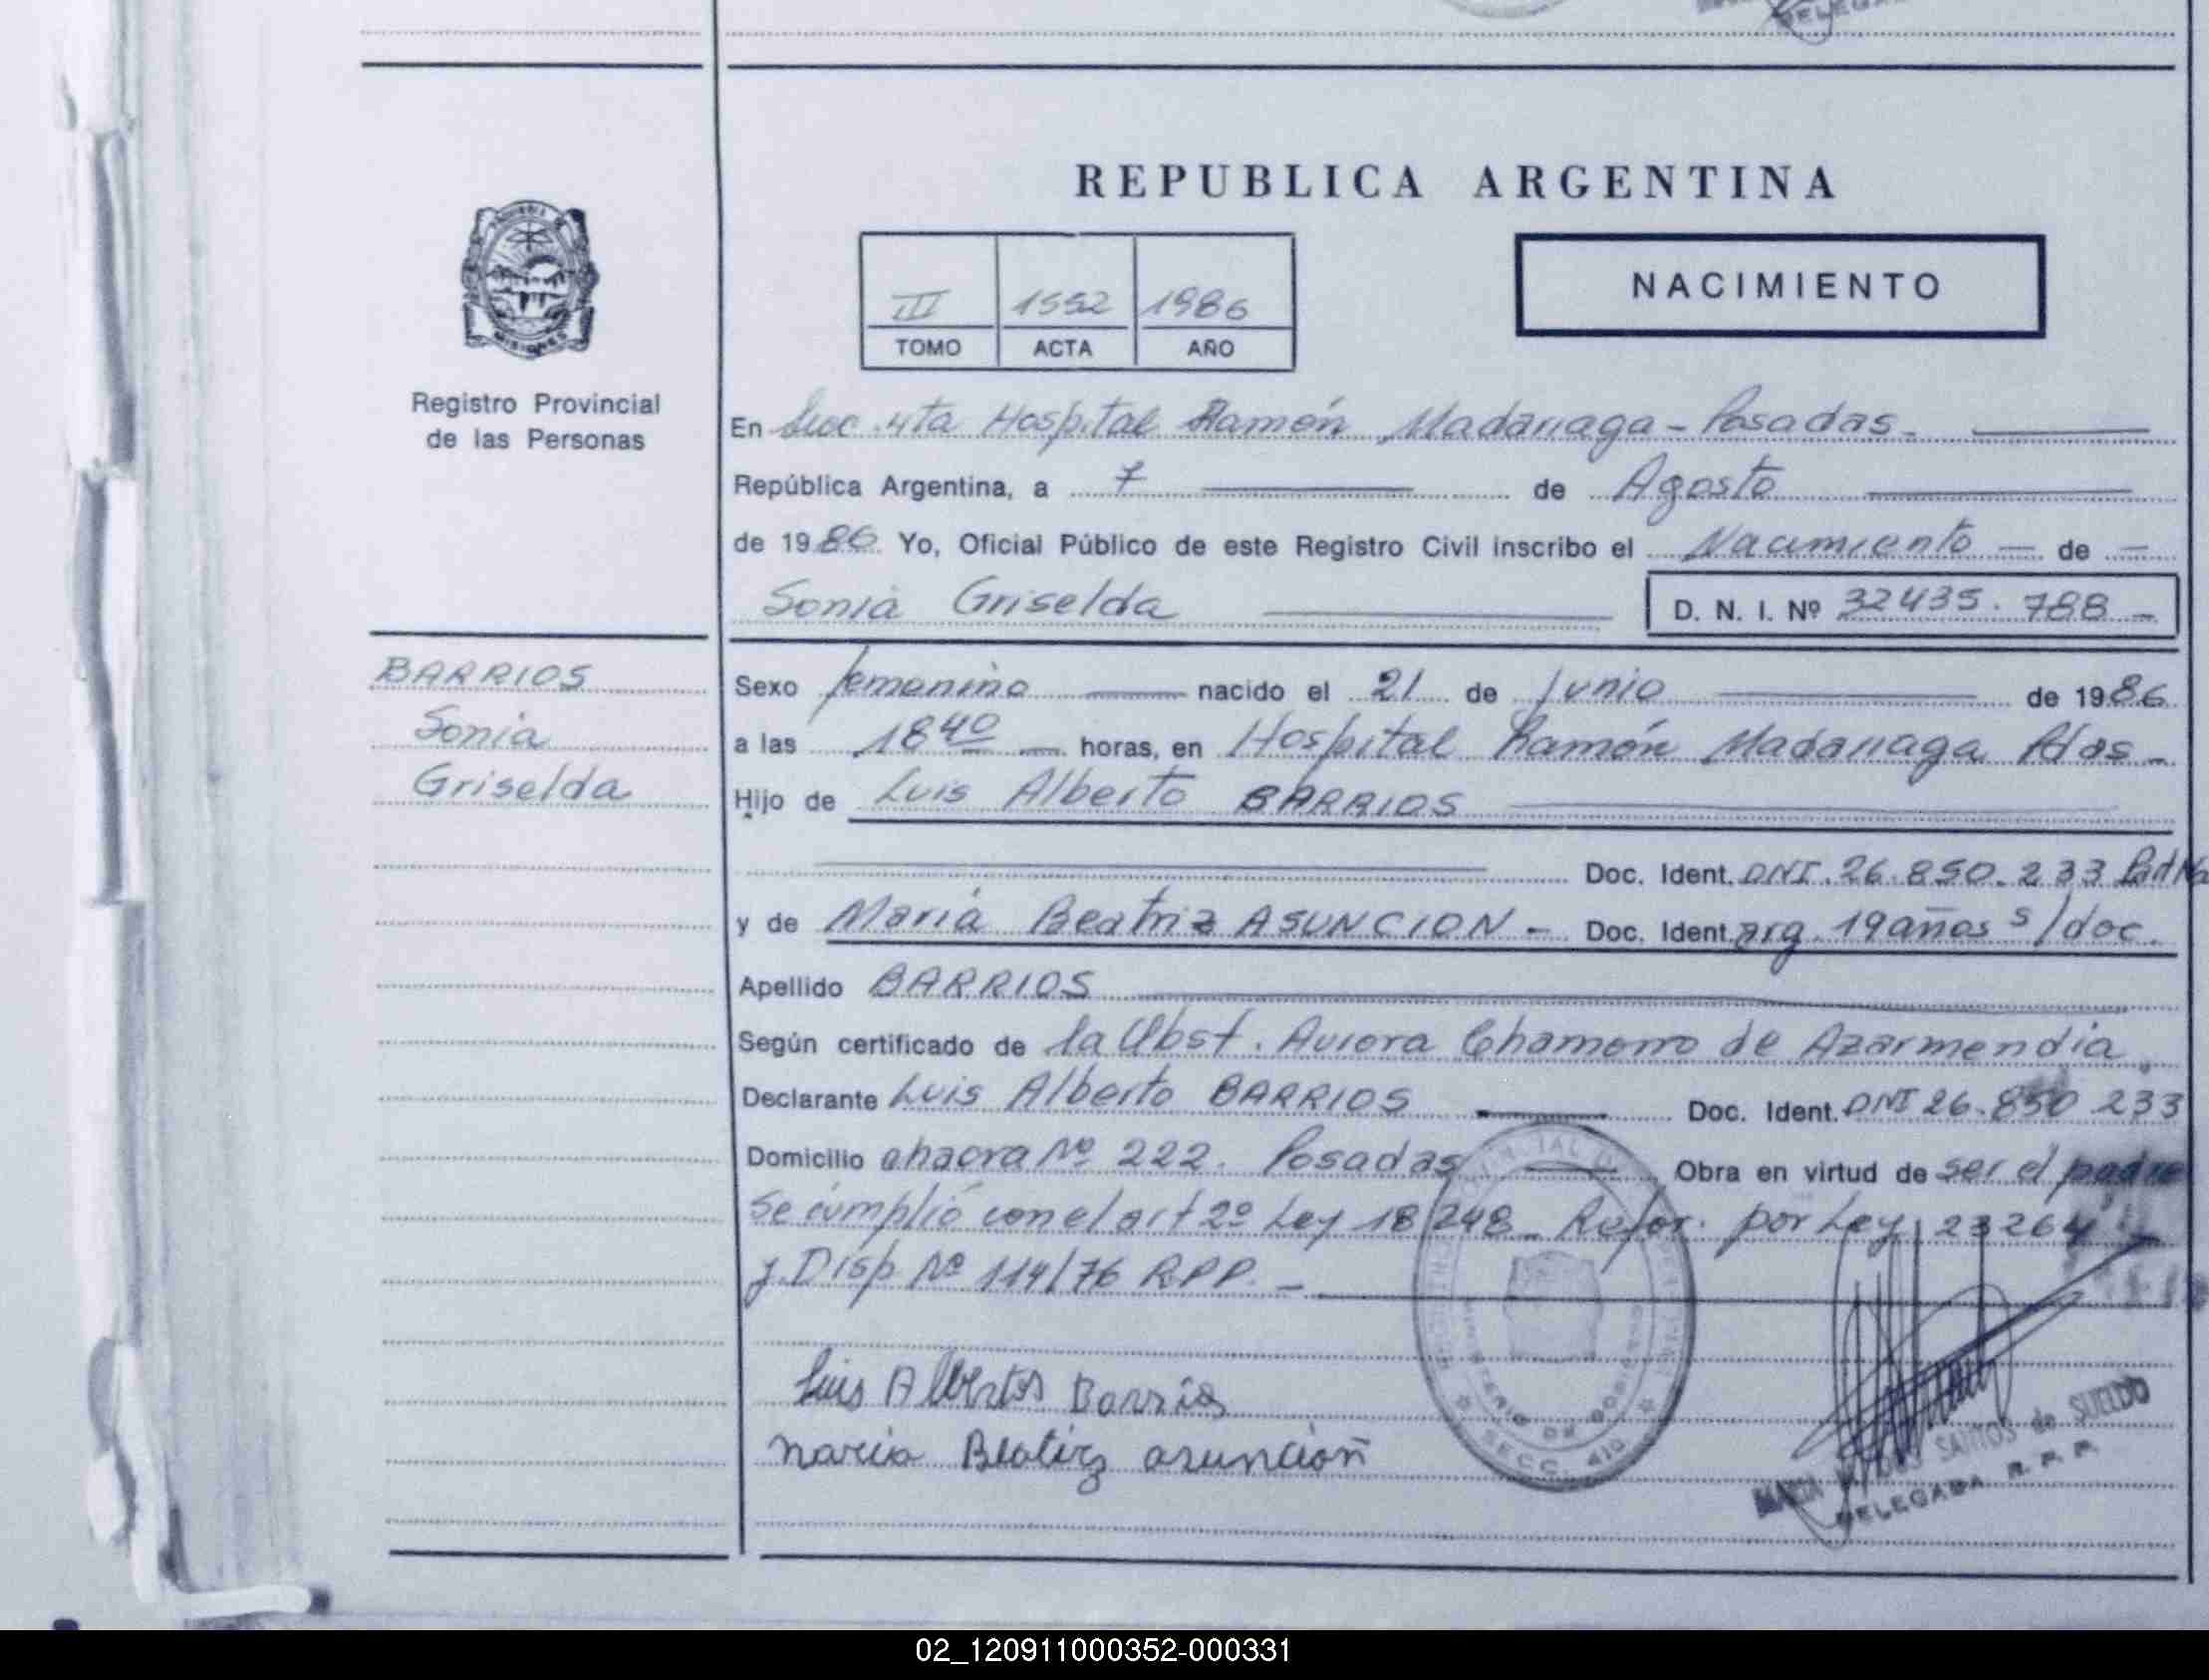 DELEGADA
REPUBLICA ARGENTINA
NACIMIENTO
III 1552 1986
TOMO ACTA AÑO
MISIONES
Registro Provincial
de las Personas
En Secc. 4ta Hospital Ramón Madariaga - Posadas -
República Argentina, a 7 de Agosto
de 1986 Yo, Oficial Público de este Registro Civil inscribo el Nacimiento — de —
Sonia Griselda D. N. I. Nº 32435.788 -
BARRIOS
Sonia
Griselda
Sexo femenino nacido el 21 de Junio de 1986
a las 18 40 horas, en Hospital Ramón Madariaga Pdas -
Hijo de Luis Alberto BARRIOS
Doc. Ident. DNI. 26.850.233
y de María Beatriz ASUNCION - Doc. Ident. arg. 19 años s/doc.
Apellido BARRIOS
Según certificado de la Obst. Aurora Chamorro de Azarmendia
Declarante Luis Alberto BARRIOS Doc. Ident. DNI 26.850 233
Domicilio chacra Nº 222. Posadas Obra en virtud de ser el padre
Se cumplió con el art 2º Ley 18248 - Refor. por Ley 23264
y Disp Nº 114/76 RPP. -
Luis Albertos Barrios
maria Beatirz asunción
MINISTERIO DE GOBIERNO
SECC. 4ta
SANTOS de SUELDO
DELEGADA R. P. P.
02_120911000352-000331